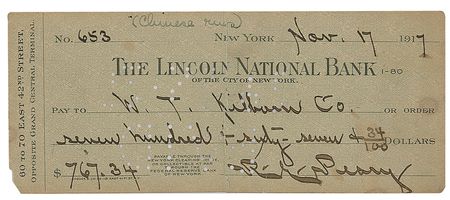 (Chinese rugs)
No. 653 NEW YORK Nov. 17 1917
THE LINCOLN NATIONAL BANK 1-80
OF THE CITY OF NEW YORK.
PAY TO W. F. Kilborn Co. OR ORDER
seven hundred & sixty-seven & 34/100 DOLLARS
$ 767.34
PAYABLE THROUGH THE
NEW YORK CLEARING HOUSE
OR COLLECTIBLE AT PAR
THROUGH THE
FEDERAL RESERVE BANK
OF NEW YORK
R. E. Peary
60 TO 70 EAST 42ND STREET,
OPPOSITE GRAND CENTRAL TERMINAL.